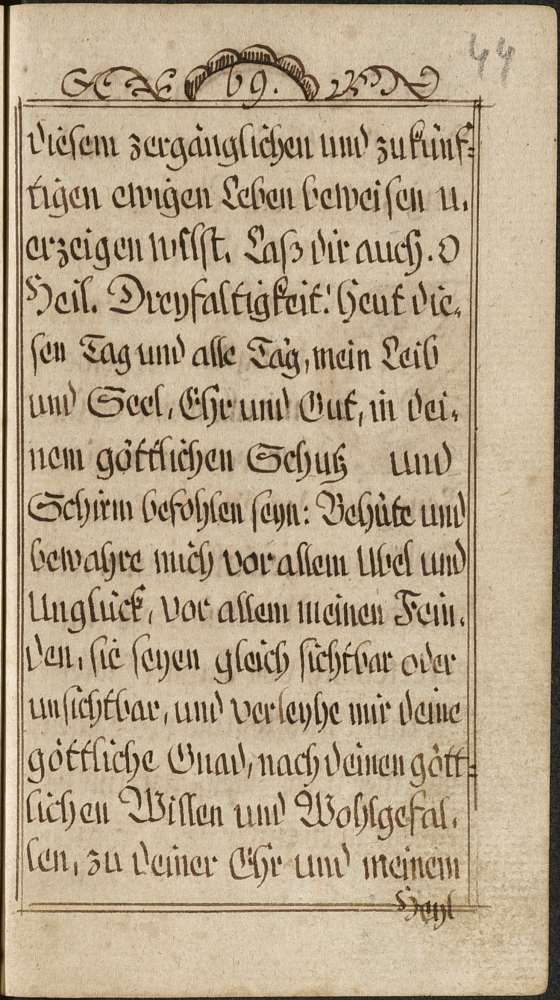 44
69.
diesem zergänglichen und zukünf=
tigen ewigen Leben beweisen u.
erzeigen willst. Laß dir auch. O
Heil. Dreyfaltigkeit! heut die,
sen Tag und alle Täg, mein Leib
und Seel, Ehr und Gut, in dei,
nem göttlichen Schutz und
Schirm befohlen seyn: Behüte und
bewahre mich vor allem Ubel und
Unglück, vor allem meinen Fein,
den, sie seyen gleich sichtbar oder
unsichtbar, und verleyhe mir deine
göttliche Gnad, nach deinen gött=
lichen Willen und Wohlgefal,
len, zu deiner Ehr und meinem
Heyl